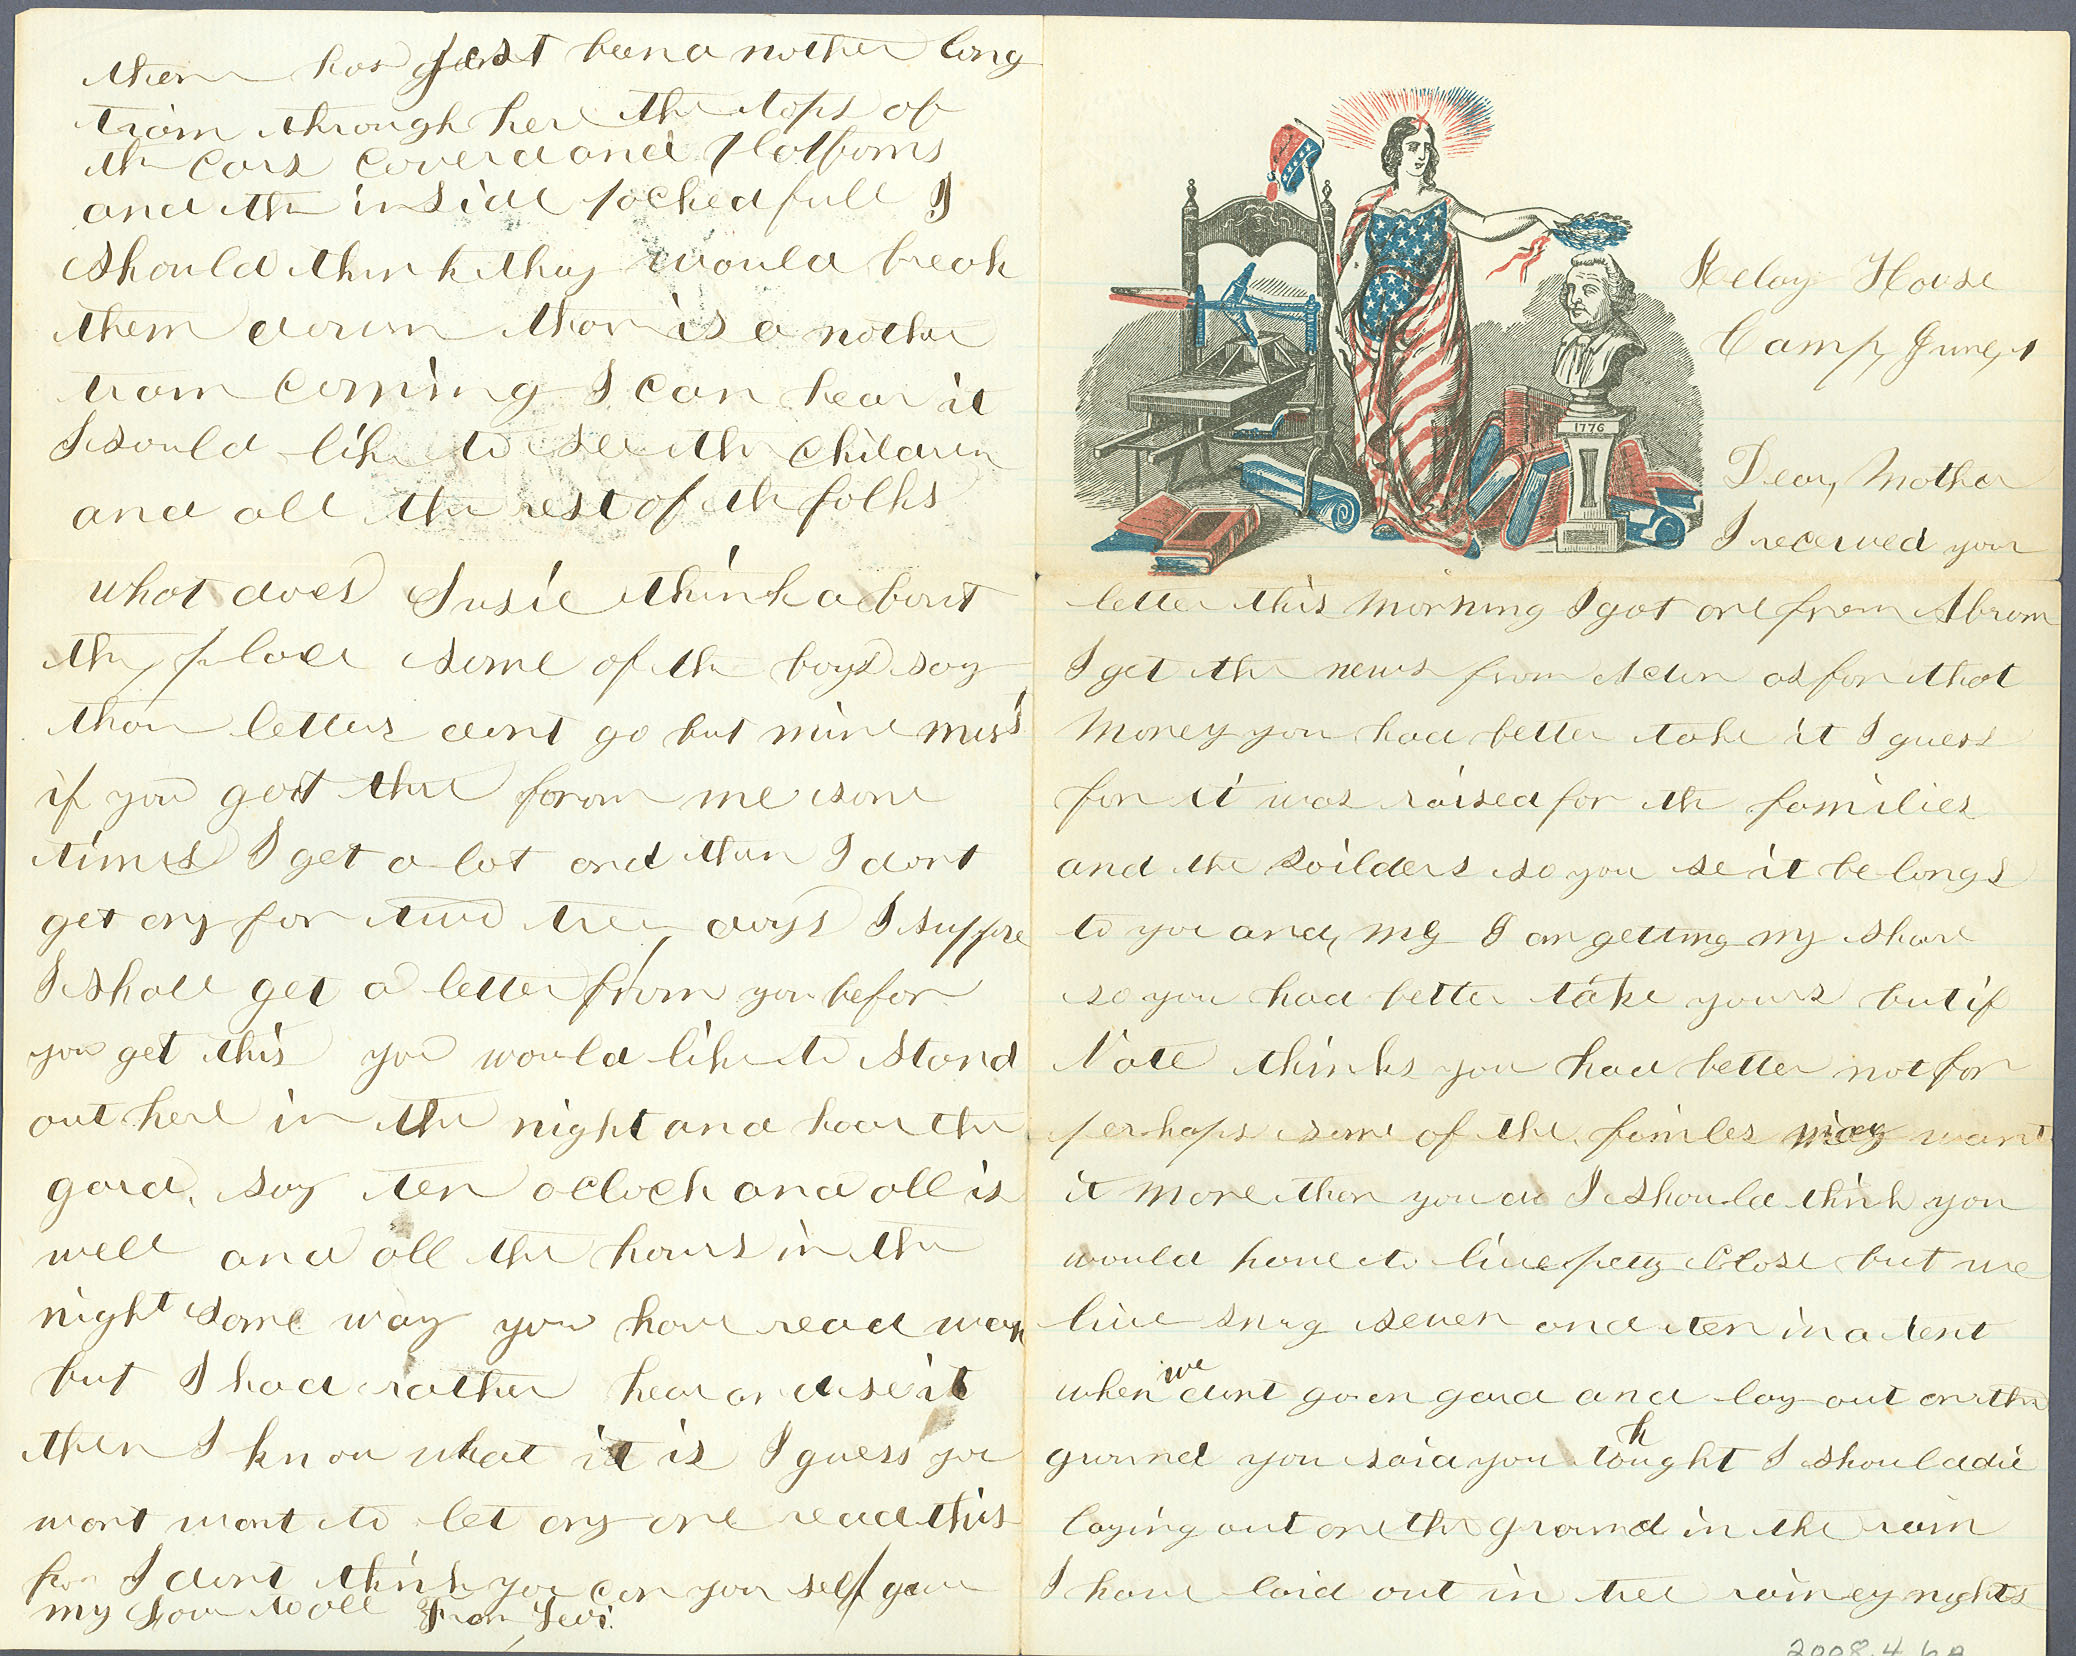 Relay House
Camp, June, 1
Dear, Mother
I received your
letter this morning I got one from Abram
I get the news from as for that
money you had better take it I guess
for it was raised for the families
and the soilders so you se it be longs
to you and, me I am getting my share
so you had better take yours but if
Nate thinks you had better not for
perhaps some of the familes may want
it more then you do I should think you
would have to live petty close but we
live snug seven and ten in a tent
when we dont go on gard and lay out on the
ground you said you thought I should die
laying out on the ground in the rain
I have laid out in tree rainey nights
1776
2008.4.6a
them has just been a nother long
train through her the tops of
the cars coverd and platforms
and the in side packed full I
should think thay would break
them down thar is a nother
train coming I can hear it
I sould like to se the children
and all the rest of the folks
what does Susie think a bout
the place some of the boys say
thair letters dont go but mine
if you get the from me some
times I get a lot and then I dont
get any for two tree days I suppse
I shall get a letter from you befor
you get this you would like to stand
out here in the night and hear the
gard, say ten oclock and all is
well and all the hours in the
night some way you have read
but I had rather hear it
then I know what it is I guess you
wont want to let any one read this
for I dont think you can your self give
my love to all From, Levi.